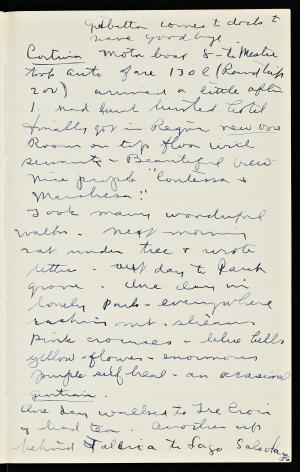 comes to dock to
wave goodbye
Cortina Motor boat 8 - to Mestre
took auto fare 130 l (Round trip
200) arrived a little after
1. Had lunch hunted hotel
finally got in Regina new one
Room on top floor with
servants - Beautiful view
nice people "Contessa &
Marchesa."
Took many wonderful
walks. next morning
sat under tree & wrote
letters. next day to
grove. One day in
lonely Park - everywhere
rushing streams
pink crocuses - blue bells
yellow flowers - enormous
purple self heal - an occasional
gentian.
One day walked to Tre Croci
& had tea. Another up
behind Faloria to Lago